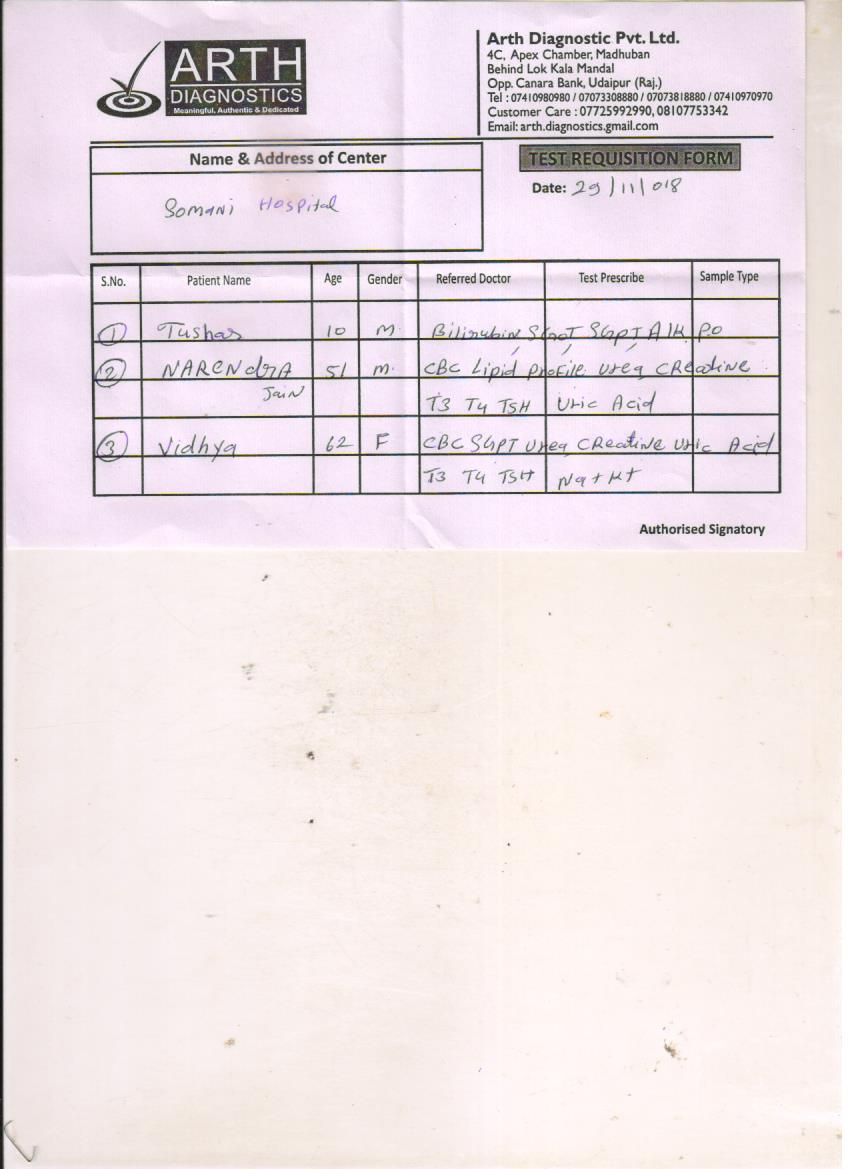 ARTH
DIAGNOSTICS
Meaningful, Authentic & Dedicated
Arth Diagnostic Pvt. Ltd.
4C, Apex Chamber, Madhuban
Behind Lok Kala Mandal
Opp. Canara Bank, Udaipur (Raj.)
Tel : 07410980980 / 07073308880 / 07073818880 / 07410970970
Customer Care : 07725992990, 08107753342
Email: arth.diagnostics.gmail.com
Name & Address of Center
TEST REQUISITION FORM
Somani Hospital
Date: 29/11/018
S.No. Patient Name Age Gender Referred Doctor Test Prescribe Sample Type
1 Tushar 10 M. Bilirubin SGOT SGPT Alk Po
2 NARENdRA 51 M. CBC Lipid Profile Urea CReatine
Jain T3 T4 TSH Uric Acid
3 Vidhya 62 F CBC SGPT Urea CReatine Uric Acid
T3 T4 TSH Na+K+
Authorised Signatory